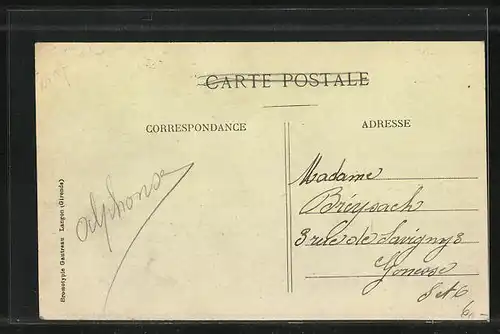 CARTE POSTALE
CORRESPONDANCE
ADRESSE
Alphonse
Madame
Bréysach
3 rue de Savigny 3
Gonesse
S et O
Bromotypie Gautreau Langon (Gironde)